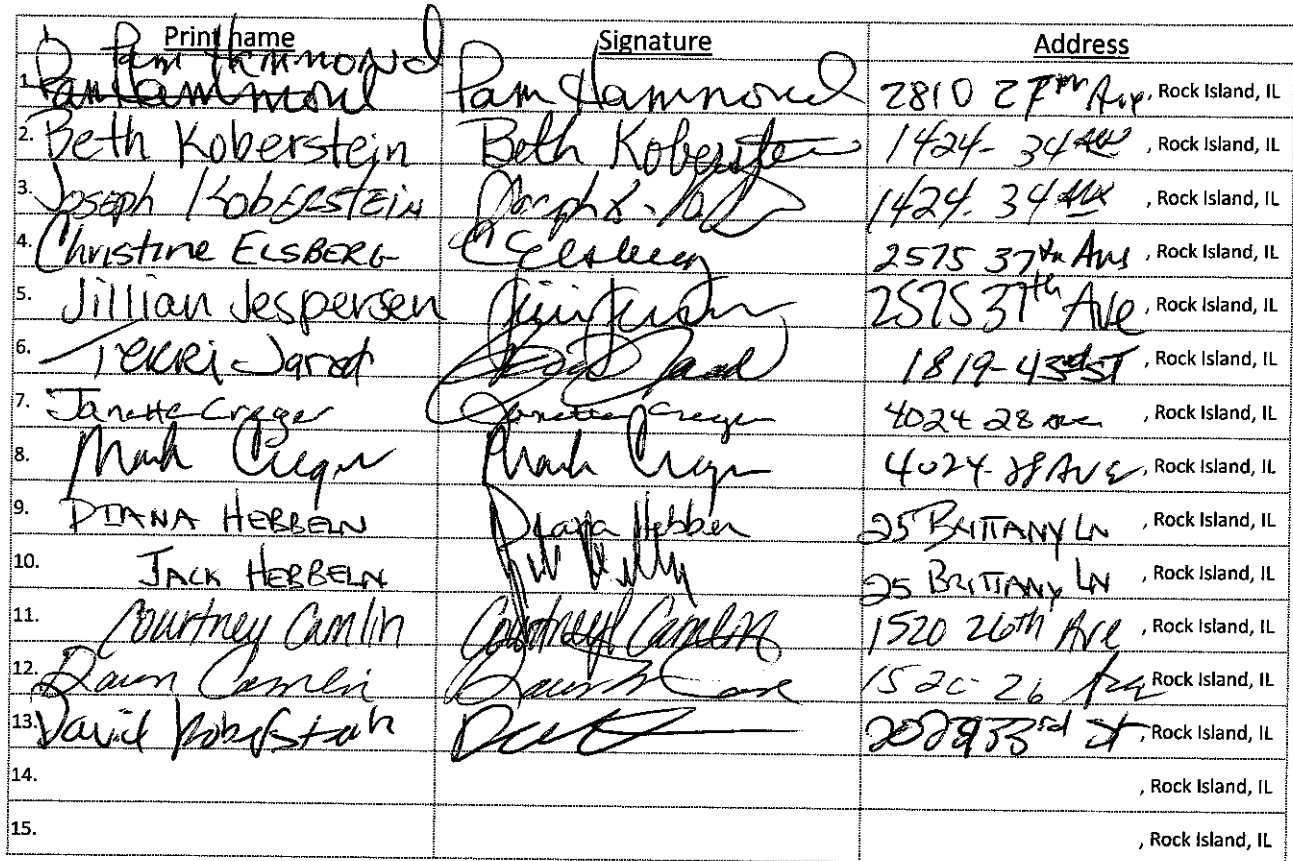 Print name Signature Address
Pam Hammond
1. Pam Hammond Pam Hammond 2810 27th Ave, Rock Island, IL
2. Beth Koberstein Beth Koberstein 1424- 34 Ave , Rock Island, IL
3. Joseph Koberstein 1424- 34 Ave , Rock Island, IL
4. Christine ELSBERG C Elsberg 2575 37th Ave , Rock Island, IL
5. Jillian Jespersen 2575 37th Ave , Rock Island, IL
6. TERRI Jarod 1819-43rd ST , Rock Island, IL
7. Janette Creger Janette Creger 4024 28 Ave , Rock Island, IL
8. Mark Creger Mark Creger 4024-28 AVE, Rock Island, IL
9. DIANA HEBBELN Diana Hebbeln 25 BRITTANY LN , Rock Island, IL
10. JACK HEBBELN 25 BRITTANY LN , Rock Island, IL
11. Courtney Camlin Courtney Camlin 1520 26th Ave , Rock Island, IL
12. Dawn Camlin 1520 26 Ave Rock Island, IL
13. David Koberstein 33rd St, Rock Island, IL
14. , Rock Island, IL
15. , Rock Island, IL